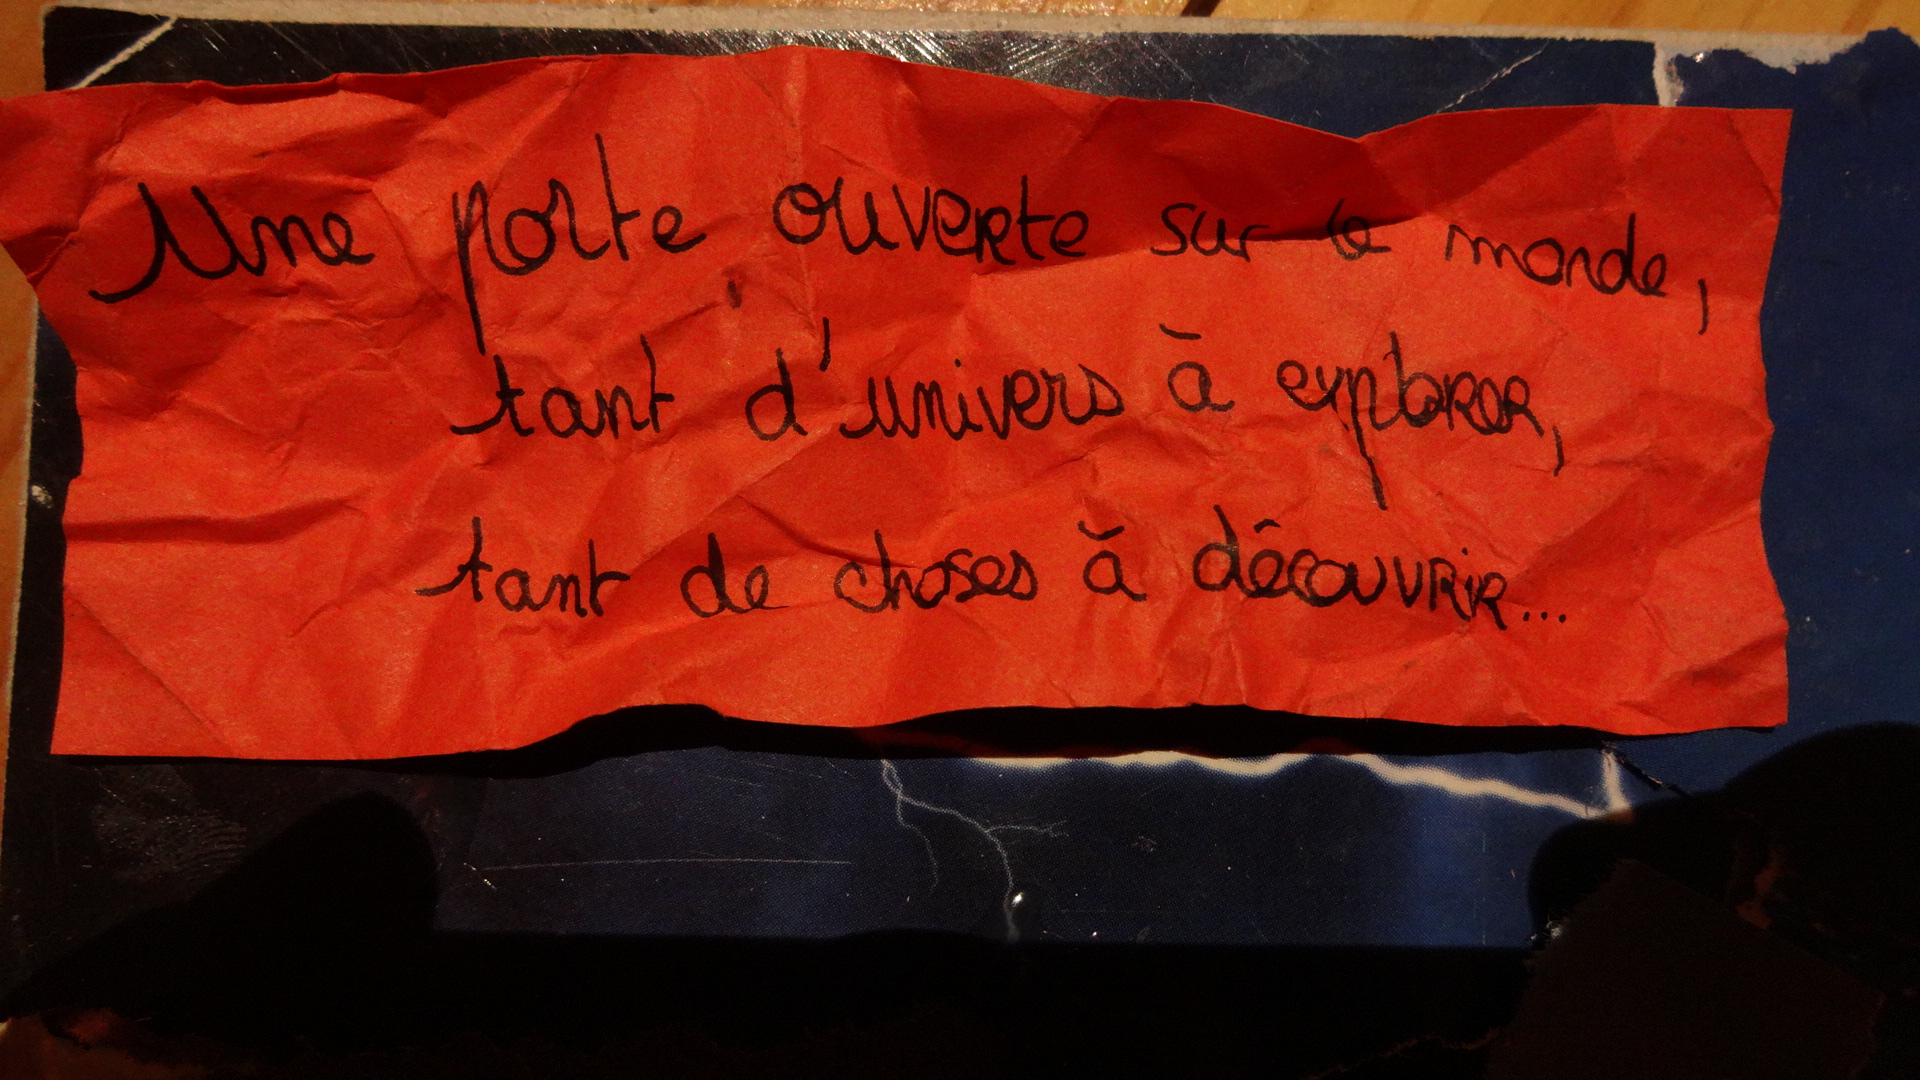 Une porte ouverte sur le monde,
tant d'univers à explorer,
tant de choses à découvrir...